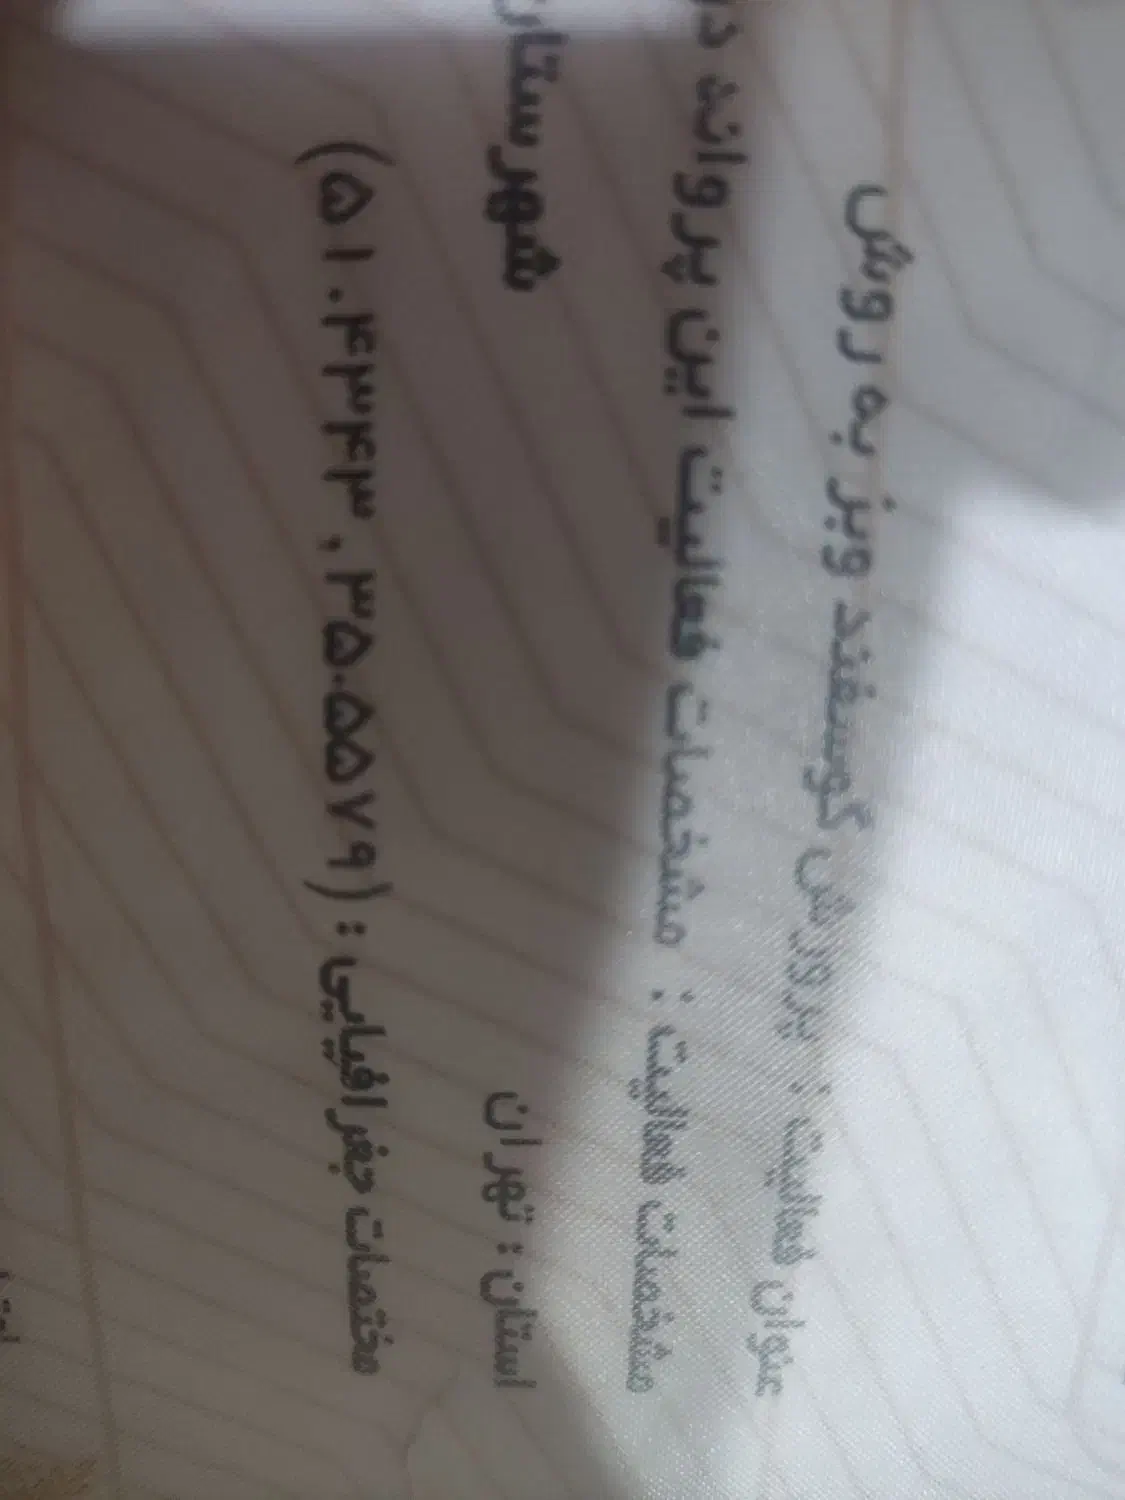 عنوان فعالیت : پرورش گوسفند ویز به روش
مشخصات فعالیت : مشخصات فعالیت این پروانه در
استان : تهران شهرستان
مختصات جغرافیایی : (۳۵.۵۵۷۹ , ۵۱.۴۳۴۳)